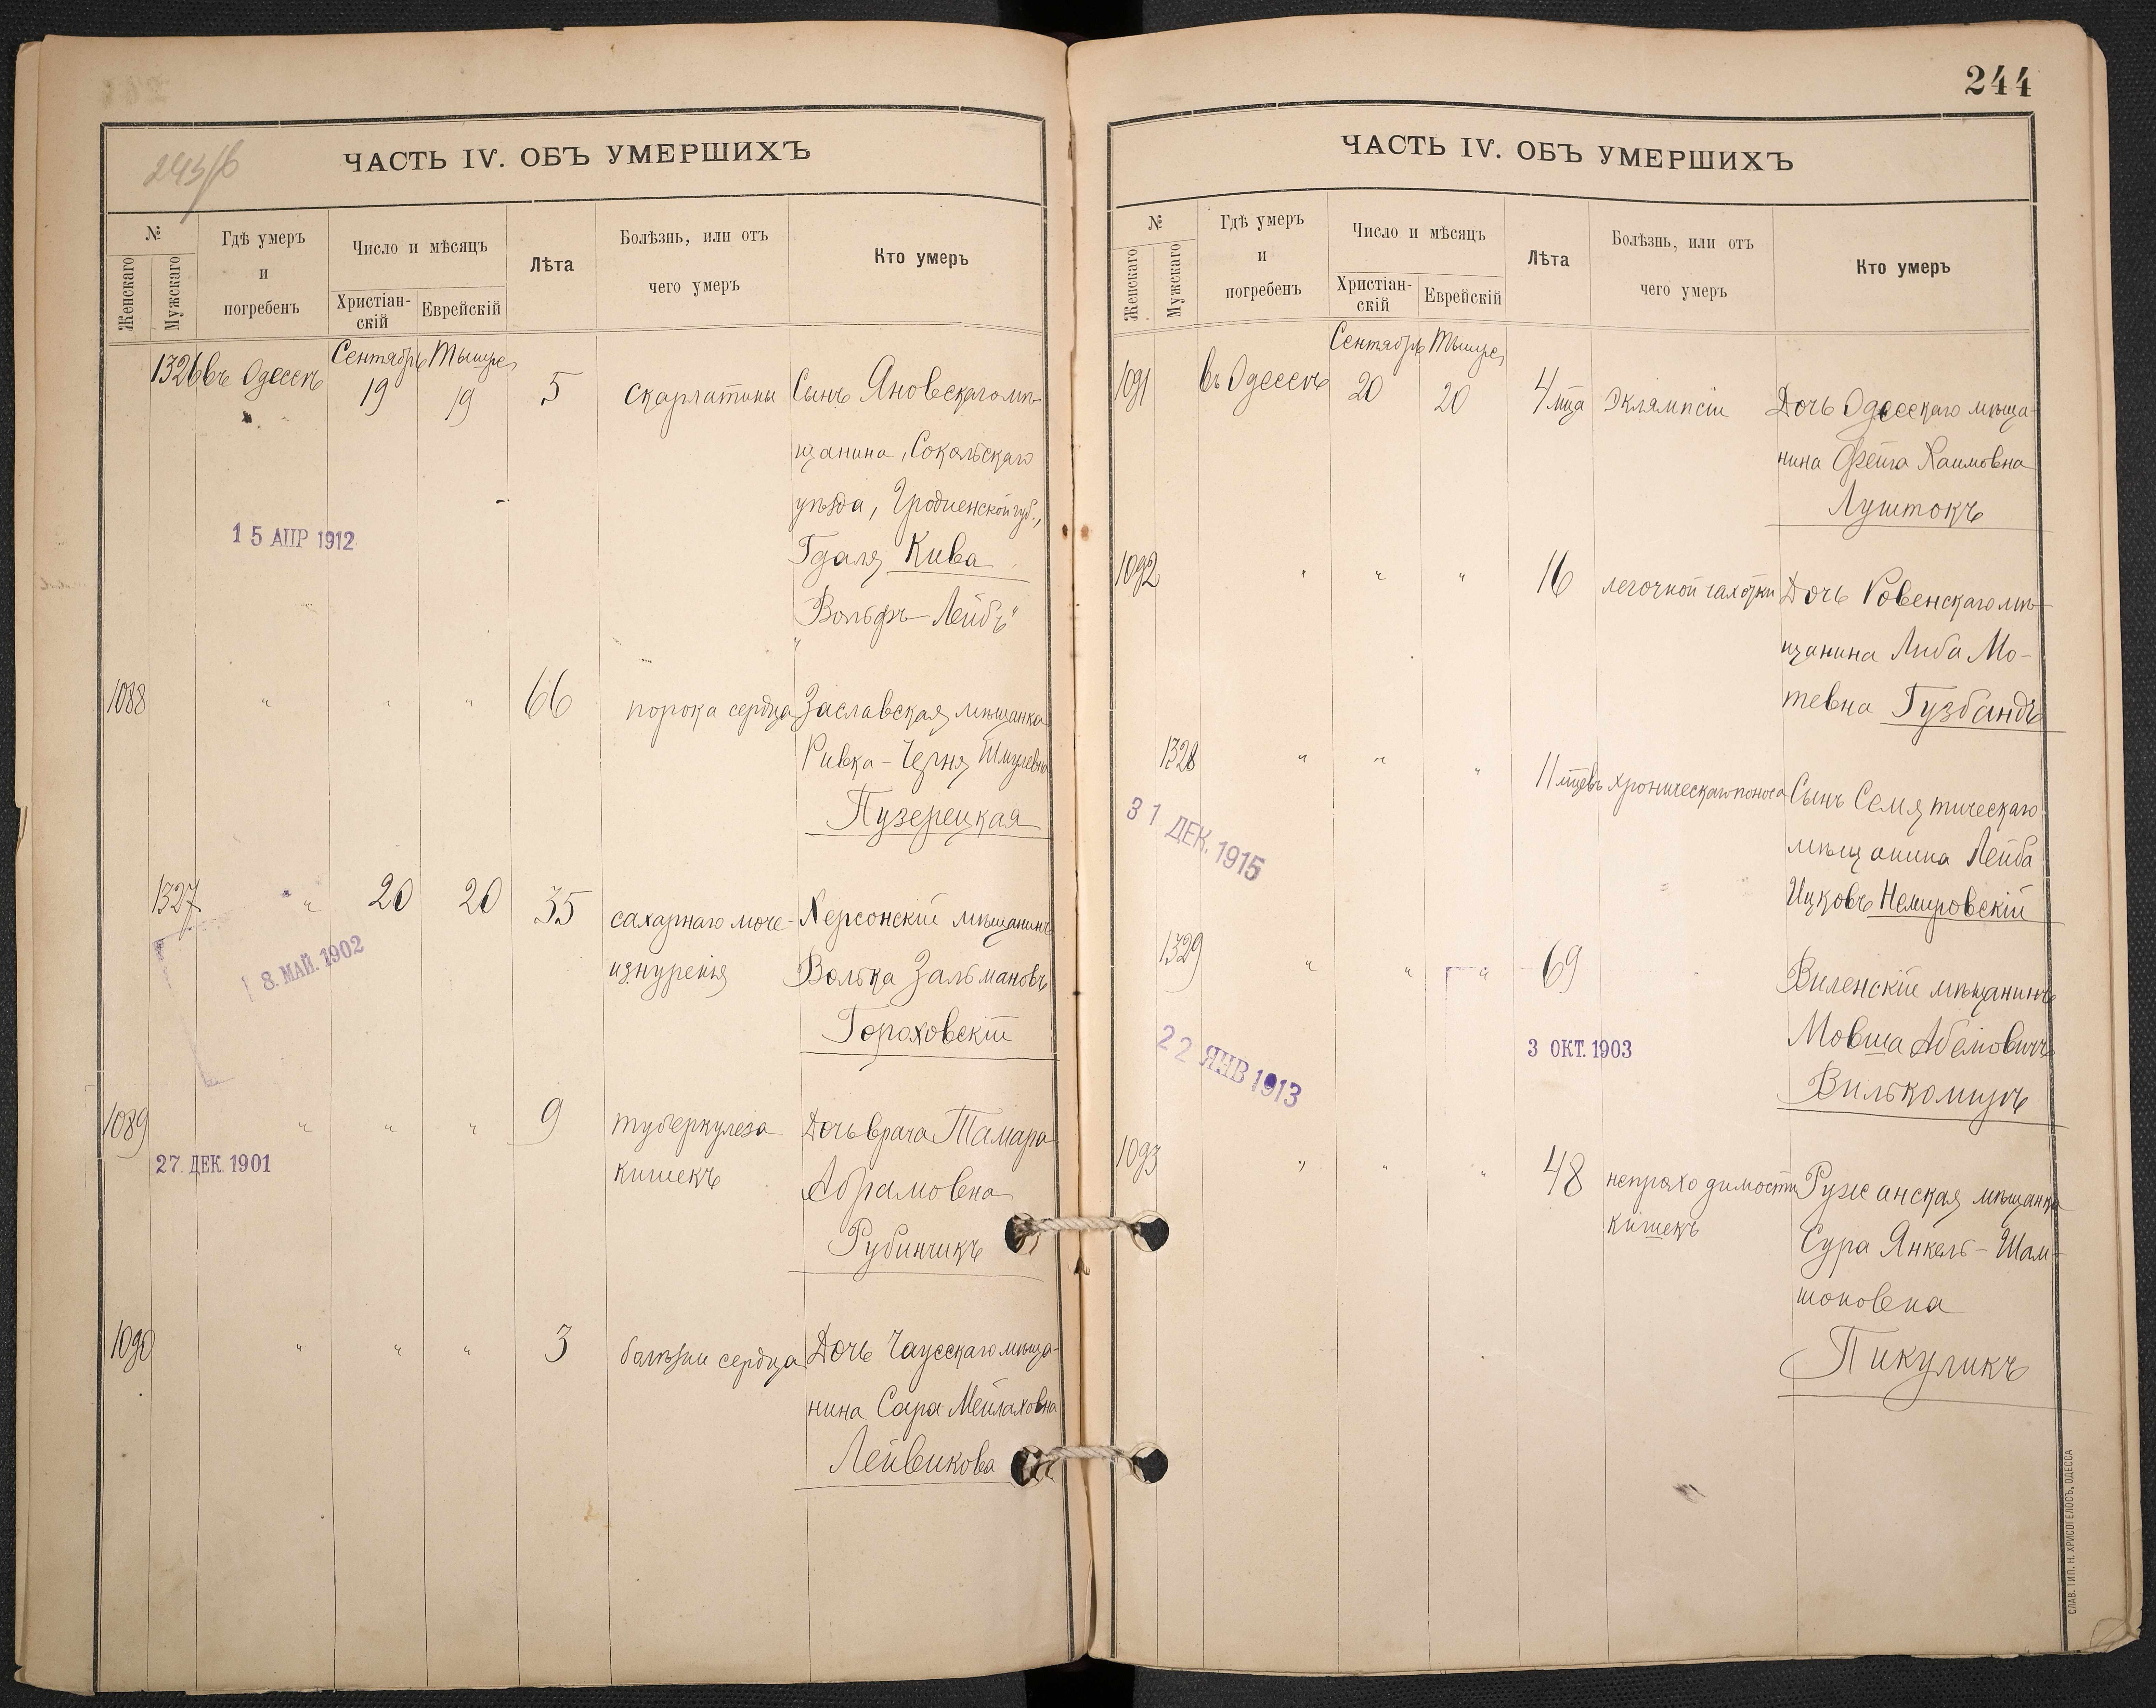 243/б
ЧАСТЬ IV. ОБЪ УМЕРШИХЪ
№
Женскаго
Мужскаго
Гдѣ умеръ
и
погребенъ
Число и мѣсяцъ
Христіан-
скій
Еврейскій
Лѣта
Болѣзнь, или отъ
чего умеръ
Кто умеръ
Сентябрь Тышре
1326 въ Одессѣ 19 19 5 скарлатины Сынъ Яновскаго мѣ-
щанина, Сокольскаго
уѣзда, Гродненской губ.,
Гдаля Кива
"Вольфъ-Лейбъ"
15 АПР 1912
1088 " " " 66 порока сердца Заславская мѣщанка
Ривка-Черня Шмулевна
Пузерецкая
1327 " 20 20 35 сахарнаго моче- Херсонскій мѣщанинъ
изнуренія Волька Зальмановъ
Гороховскій
18. МАЙ. 1902
1089 " " " 9 туберкулеза Дочь врача Тамара
кишекъ Абрамовна
Рубинчикъ
27. ДЕК. 1901
1090 " " " 3 болѣзни сердца Дочь Чаусскаго мѣща-
нина Сара Мейлаховна
Лейвикова
244
ЧАСТЬ IV. ОБЪ УМЕРШИХЪ
№
Женскаго
Мужскаго
Гдѣ умеръ
и
погребенъ
Число и мѣсяцъ
Христіан-
скій
Еврейскій
Лѣта
Болѣзнь, или отъ
чего умеръ
Кто умеръ
Сентябрь Тышре
1091 въ Одессѣ 20 20 4 мца Эклямпсіи Дочь Одесскаго мѣща-
нина Фейга Хаимовна
Луштокъ
1092 " " " 16 легочной чахотки Дочь Ровенскаго мѣ-
щанина Либа Мо-
тевна Гузбандъ
1328 " " " 11 мцевъ хроническаго поноса Сынъ Семятическаго
мѣщанина Лейба
Ицковъ Немировскій
31 ДЕК. 1915
1329 " " " 69 Виленскій мѣщанинъ
Мовша Абелiовичъ
Вилькомиръ
22 ЯНВ 1913
3 ОКТ. 1903
1093 " " " 48 непроходимости Ружанская мѣщанка
кишекъ Сура Янкель-Шам-
шоновна
Пикуликъ
СЛАВ. ТИП. Н. ХРИСОГЕЛОСЪ, ОДЕССА